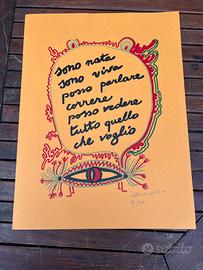 sono nata
sono viva
posso parlare
correre
posso vedere
tutto quello
che voglio
subito